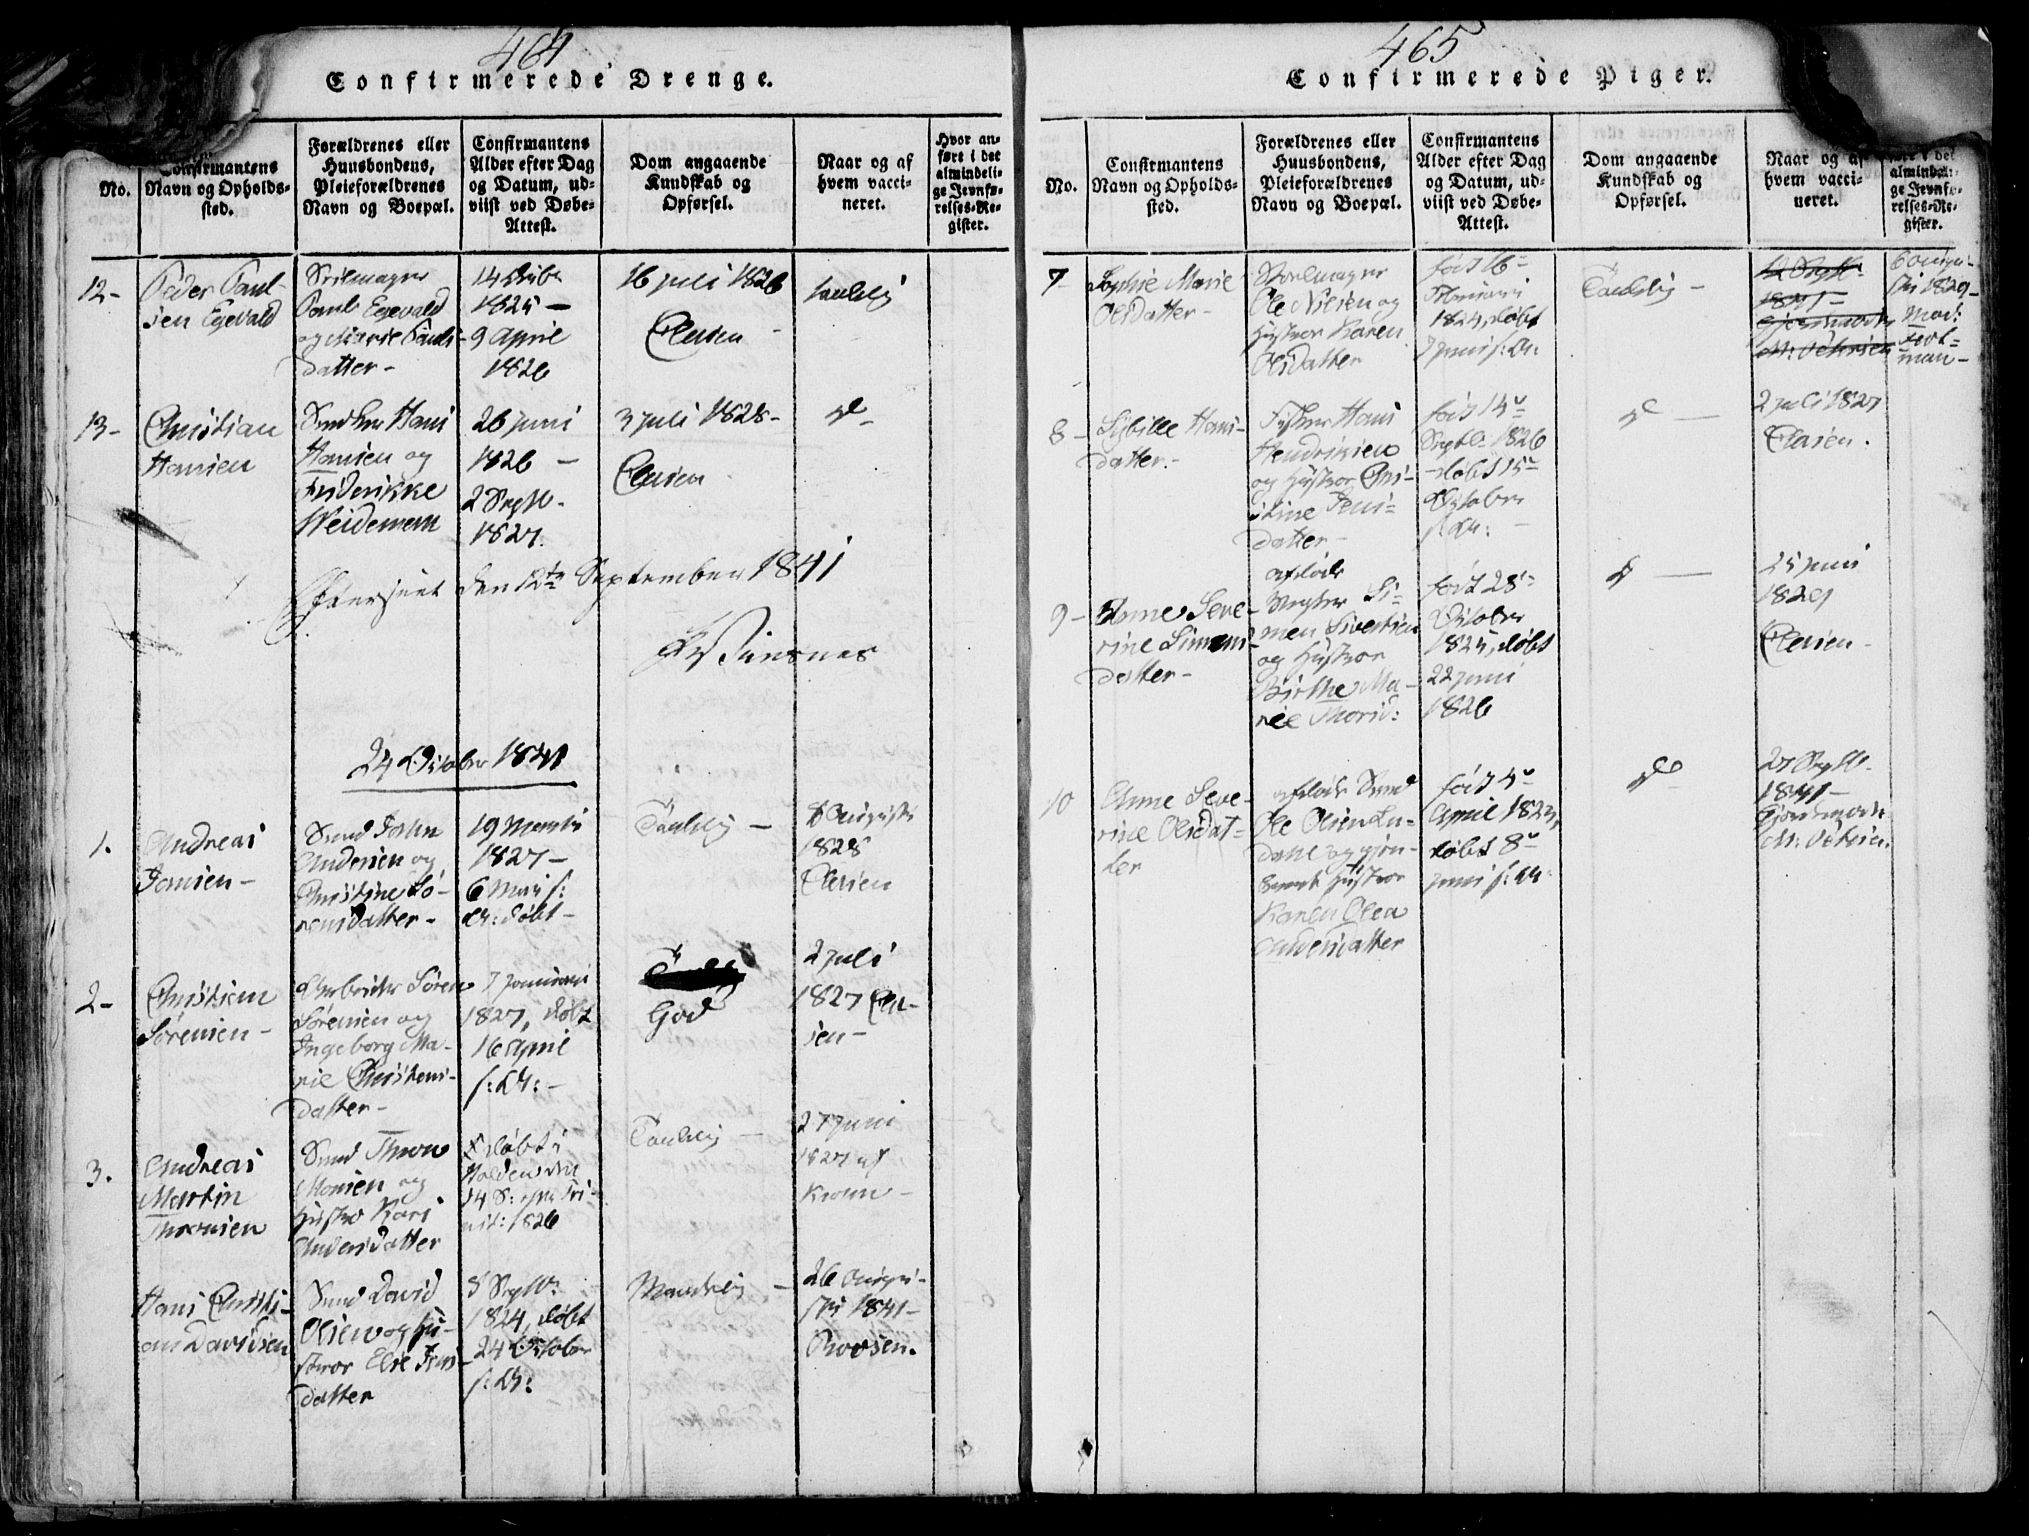 464
Confirmerede Drenge.
No.
Confirmantens
Navn og Opholds-
sted.
Forældrenes eller
Huusbondens,
Pleieforældrenes
Navn og Boepæl.
Confirmantens
Alder efter Dag
og Datum, ud-
viist ved Døbe-
Attest.
Dom angaaende
Kundskab og
Opførsel.
Naar og af
hvem vacci-
neret.
Hvor an-
ført i det
almindeli-
ge Jevnfø-
relses-Re-
gister.
12-
Peder Paul-
sen Egevald
Paul Egevald
og Marie Pauls-
datter-
1825 -
9 April
1826
16 juli 1826
Clasen
taalelig
13-
Christian
Hansen
Hans
Hansen og
Friderikke
Weidemann
26 juni
1826 -
2 Septbr.
1827.
3 juli 1828-
Clasen
do-
Efterseet den 12te September 1841
24 October 1841
1.
Andreas
Jansen-
Smd John
Andersen og
Christine Sø-
rensdatter-
19 Martii
1827-
6 Maii s:
A: døbt-
Taalelig-
8 Augusti
1828
Clasen
2-
Christian
Sørensen-
Arbeider Søren
Sørensen og
Ingeborg Ma-
rie Christens-
datter-
7 Januari
1827, døbt
16 April
s: A:-
God
2 juli
1827 Cla-
sen-
3.
Andreas
Martin
Thronsen
Smd Thron
Monsen og
Hustro Kari
Andersdatter
døbt i
Holden den
14 S: p: Tri-
nit: 1826
Taalelig-
27 juni
1827 af
Krohn-
Hans Christi-
an Davidsen
Smd David
Olsen og Hu-
stroe Else Jens-
datter
5 Septbr:
1824, døbt
24 October
s: A:
Maadelig-
26 Augu-
sti 1841-
Rovsen.
465
Confirmerede Piger.
No.
Confirmantens
Navn og Opholds-
sted.
Forældrenes eller
Huusbondens,
Pleieforældrenes
Navn og Boepæl.
Confirmantens
Alder efter Dag
og Datum, ud-
viist ved Døbe-
Attest.
Dom angaaende
Kundskab og
Opførsel.
Naar og af
hvem vacci-
neret.
ført i det
almindeli-
ge Jevnfø-
relses-Re-
gister.
7-
Sophie Marie
Olsdatter-
Ole Nilsen og
Hustroe Karen
Olsdatter
født 16-
Februari
1824, døbt
7 Juni s: A:
Taalelig-
12 Septbr.
1841-
Gjordmoder
M: Petersen
6 Augu-
sti 1829-
Mad:
Fort-
man-
8-
Sybille Hans-
datter.
Fisker Hans
Hendriksen
og Hustroe Chri-
stine Jens-
datter-
født 14-
Septb: 1826
-døbt 15-
October
s: A:-
do-
2 juli 1827
Clasen.
9-
Anne Seve-
rine Simens-
datter-
afdøde
Si-
men Sivertsen
og Hustroe
Birthe Ma-
rie Thorsd:
født 28-
October
1825, døbt
22 juni
1826
do-
25 juni
1829
Clasen-
10
Anne Seve-
rine Olsdat-
ter
afdøde Smd
Ole Olsen Lu-
dahl og gjen-
levende Hustroe
Karen Olea
Andersdatter
født 4-
April 1823,
døbt 8-
juni s: A:
do-
27 Septbr.
1841-
Gjordmoder
M: Petersen.